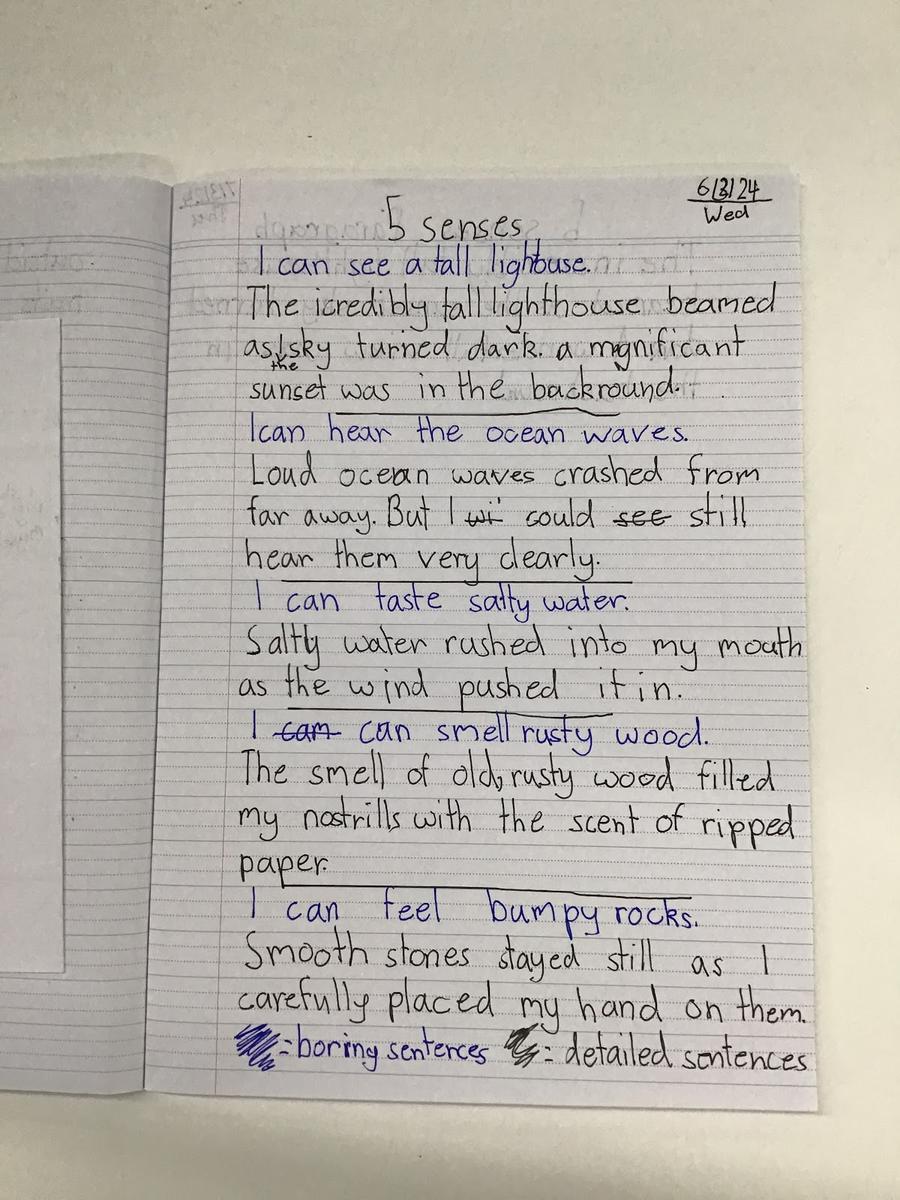 6/3/24
Wed
5 senses
I can see a tall lighouse.
The icredibly tall lighthouse beamed
as the sky turned dark. a magnificant
sunset was in the backround.
I can hear the ocean waves.
Loud ocean waves crashed from
far away. But I wi could see still
hear them very clearly.
I can taste salty water.
Saltly water rushed into my mouth
as the wind pushed it in.
I cam can smell rusty wood.
The smell of old, rusty wood filled
my nostrills with the scent of ripped
paper.
I can feel bumpy rocks.
Smooth stones stayed still as I
carefully placed my hand on them.
= boring sentences = detailed sentences